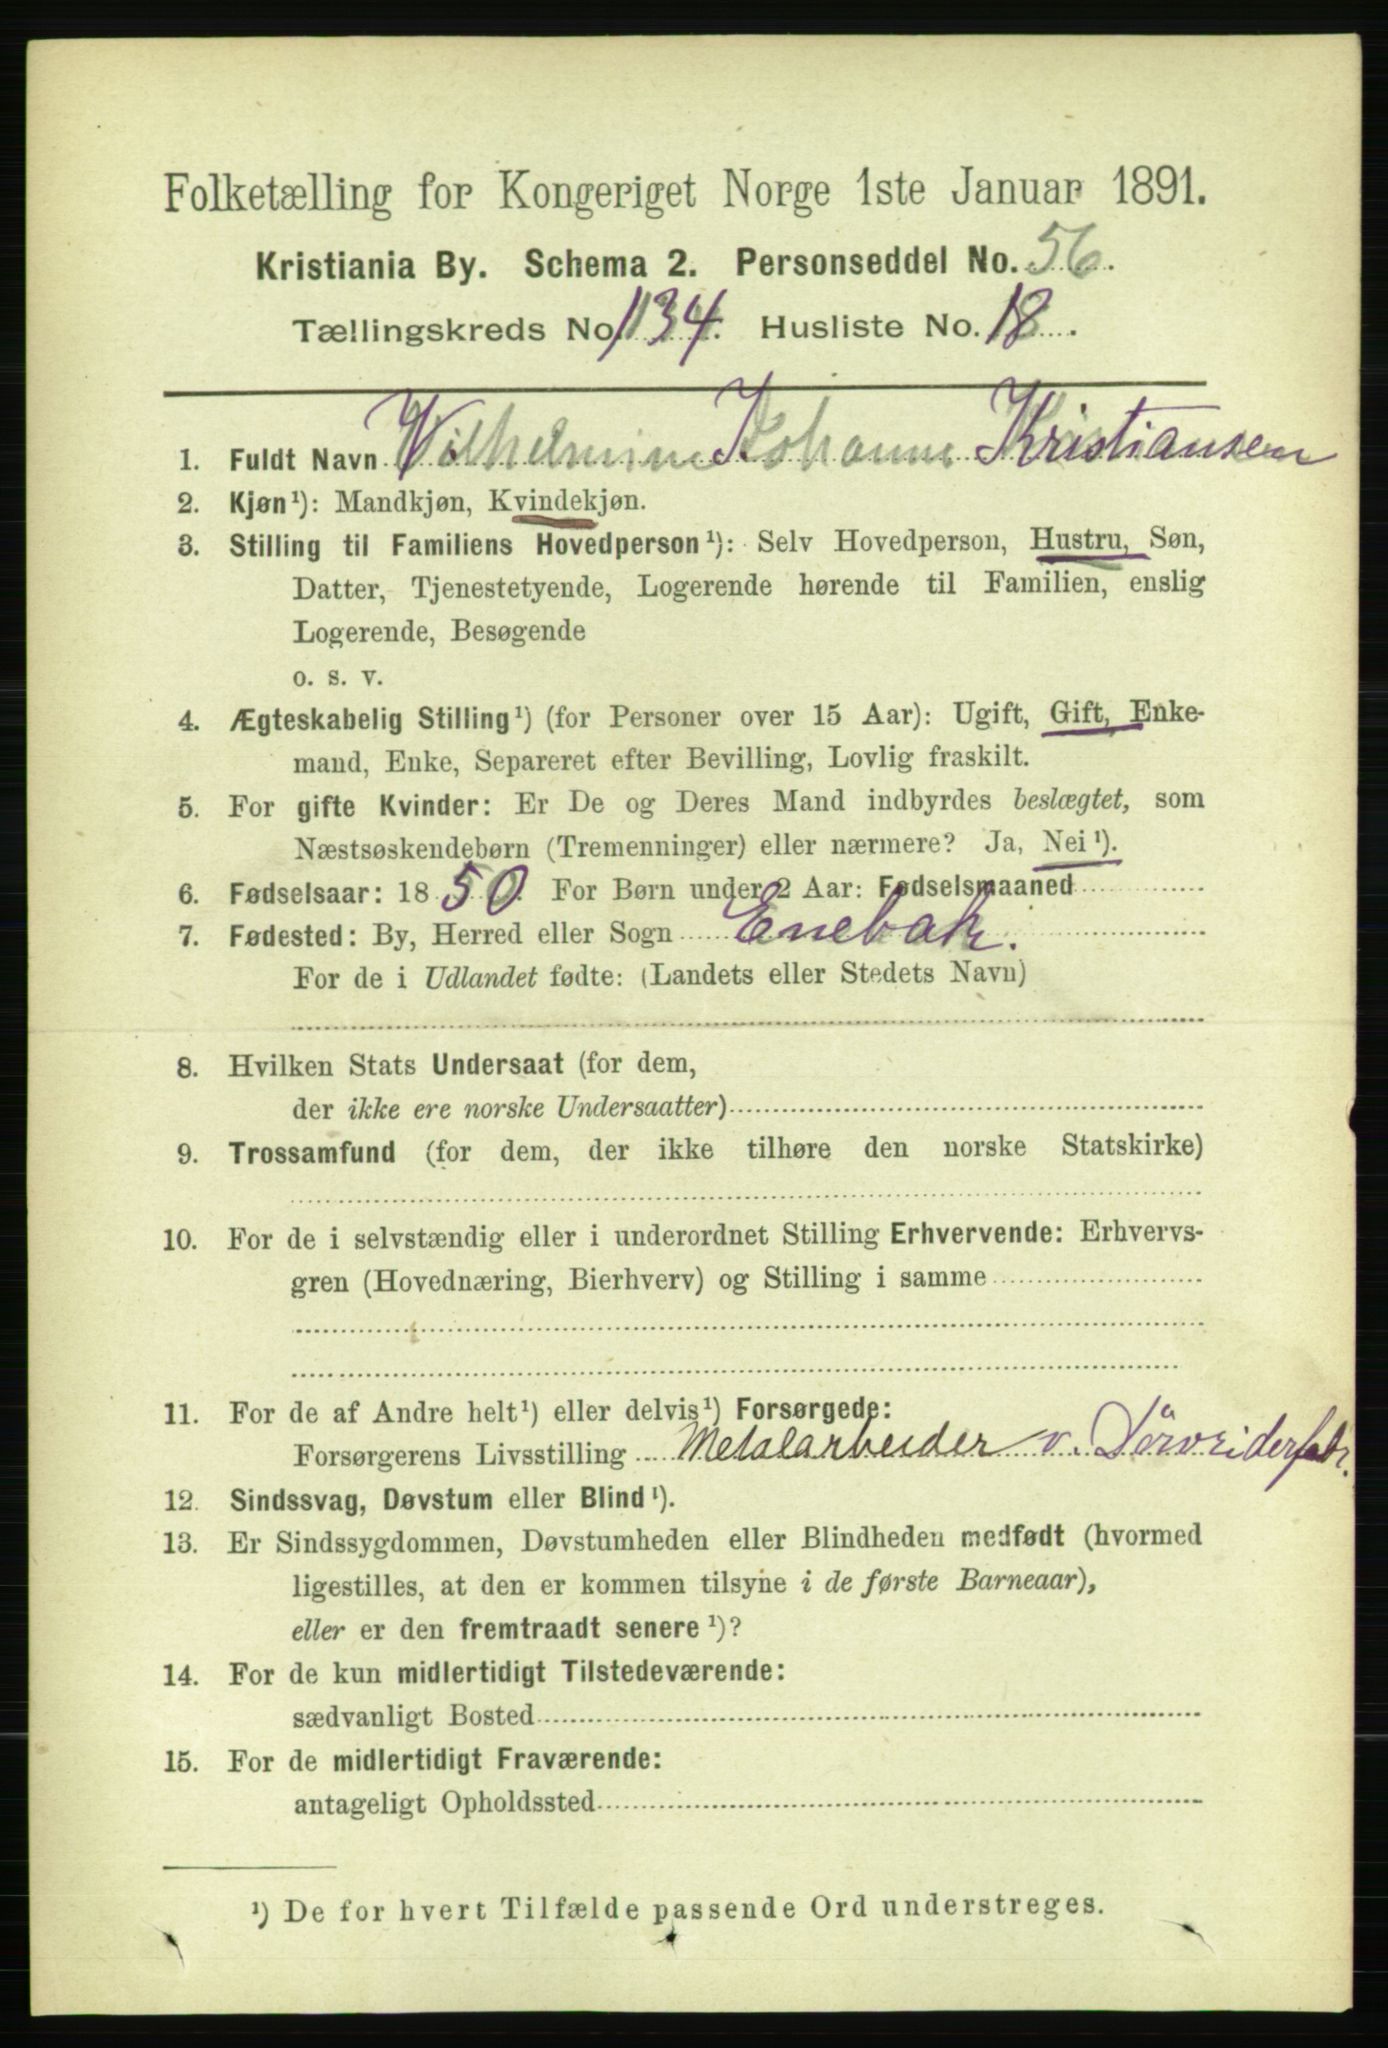 Folketælling for Kongeriget Norge 1ste Januar 1891.
Kristiania By. Schema 2. Personseddel No. 56.
Tællingskreds No. 134. Husliste No. 18.
1. Fuldt Navn Vilhelmine Johanne Kristiansen
2. Kjøn¹): Mandkjøn, Kvindekjøn.
3. Stilling til Familiens Hovedperson¹): Selv Hovedperson, Hustru, Søn,
Datter, Tjenestetyende, Logerende hørende til Familien, enslig
Logerende, Besøgende
o. s. v.
4. Ægteskabelig Stilling¹) (for Personer over 15 Aar): Ugift, Gift, Enke-
mand, Enke, Separeret efter Bevilling, Lovlig fraskilt.
5. For gifte Kvinder: Er De og Deres Mand indbyrdes beslægtet, som
Næstsøskendebørn (Tremenninger) eller nærmere? Ja, Nei¹).
6. Fødselsaar: 1850. For Børn under 2 Aar: Fødselsmaaned
7. Fødested: By, Herred eller Sogn Enebak.
For de i Udlandet fødte: (Landets eller Stedets Navn)
8. Hvilken Stats Undersaat (for dem,
der ikke ere norske Undersaatter)
9. Trossamfund (for dem, der ikke tilhøre den norske Statskirke)
10. For de i selvstændig eller i underordnet Stilling Erhvervende: Erhvervs-
gren (Hovednæring, Bierhverv) og Stilling i samme
11. For de af Andre helt¹) eller delvis¹) Forsørgede:
Forsørgerens Livsstilling Metalarbeider v.
12. Sindssvag, Døvstum eller Blind¹).
13. Er Sindssygdommen, Døvstumheden eller Blindheden medfødt (hvormed
ligestilles, at den er kommen tilsyne i de første Barneaar),
eller er den fremtraadt senere¹)?
14. For de kun midlertidigt Tilstedeværende:
sædvanligt Bosted
15. For de midlertidigt Fraværende:
antageligt Opholdssted
¹) De for hvert Tilfælde passende Ord understreges.